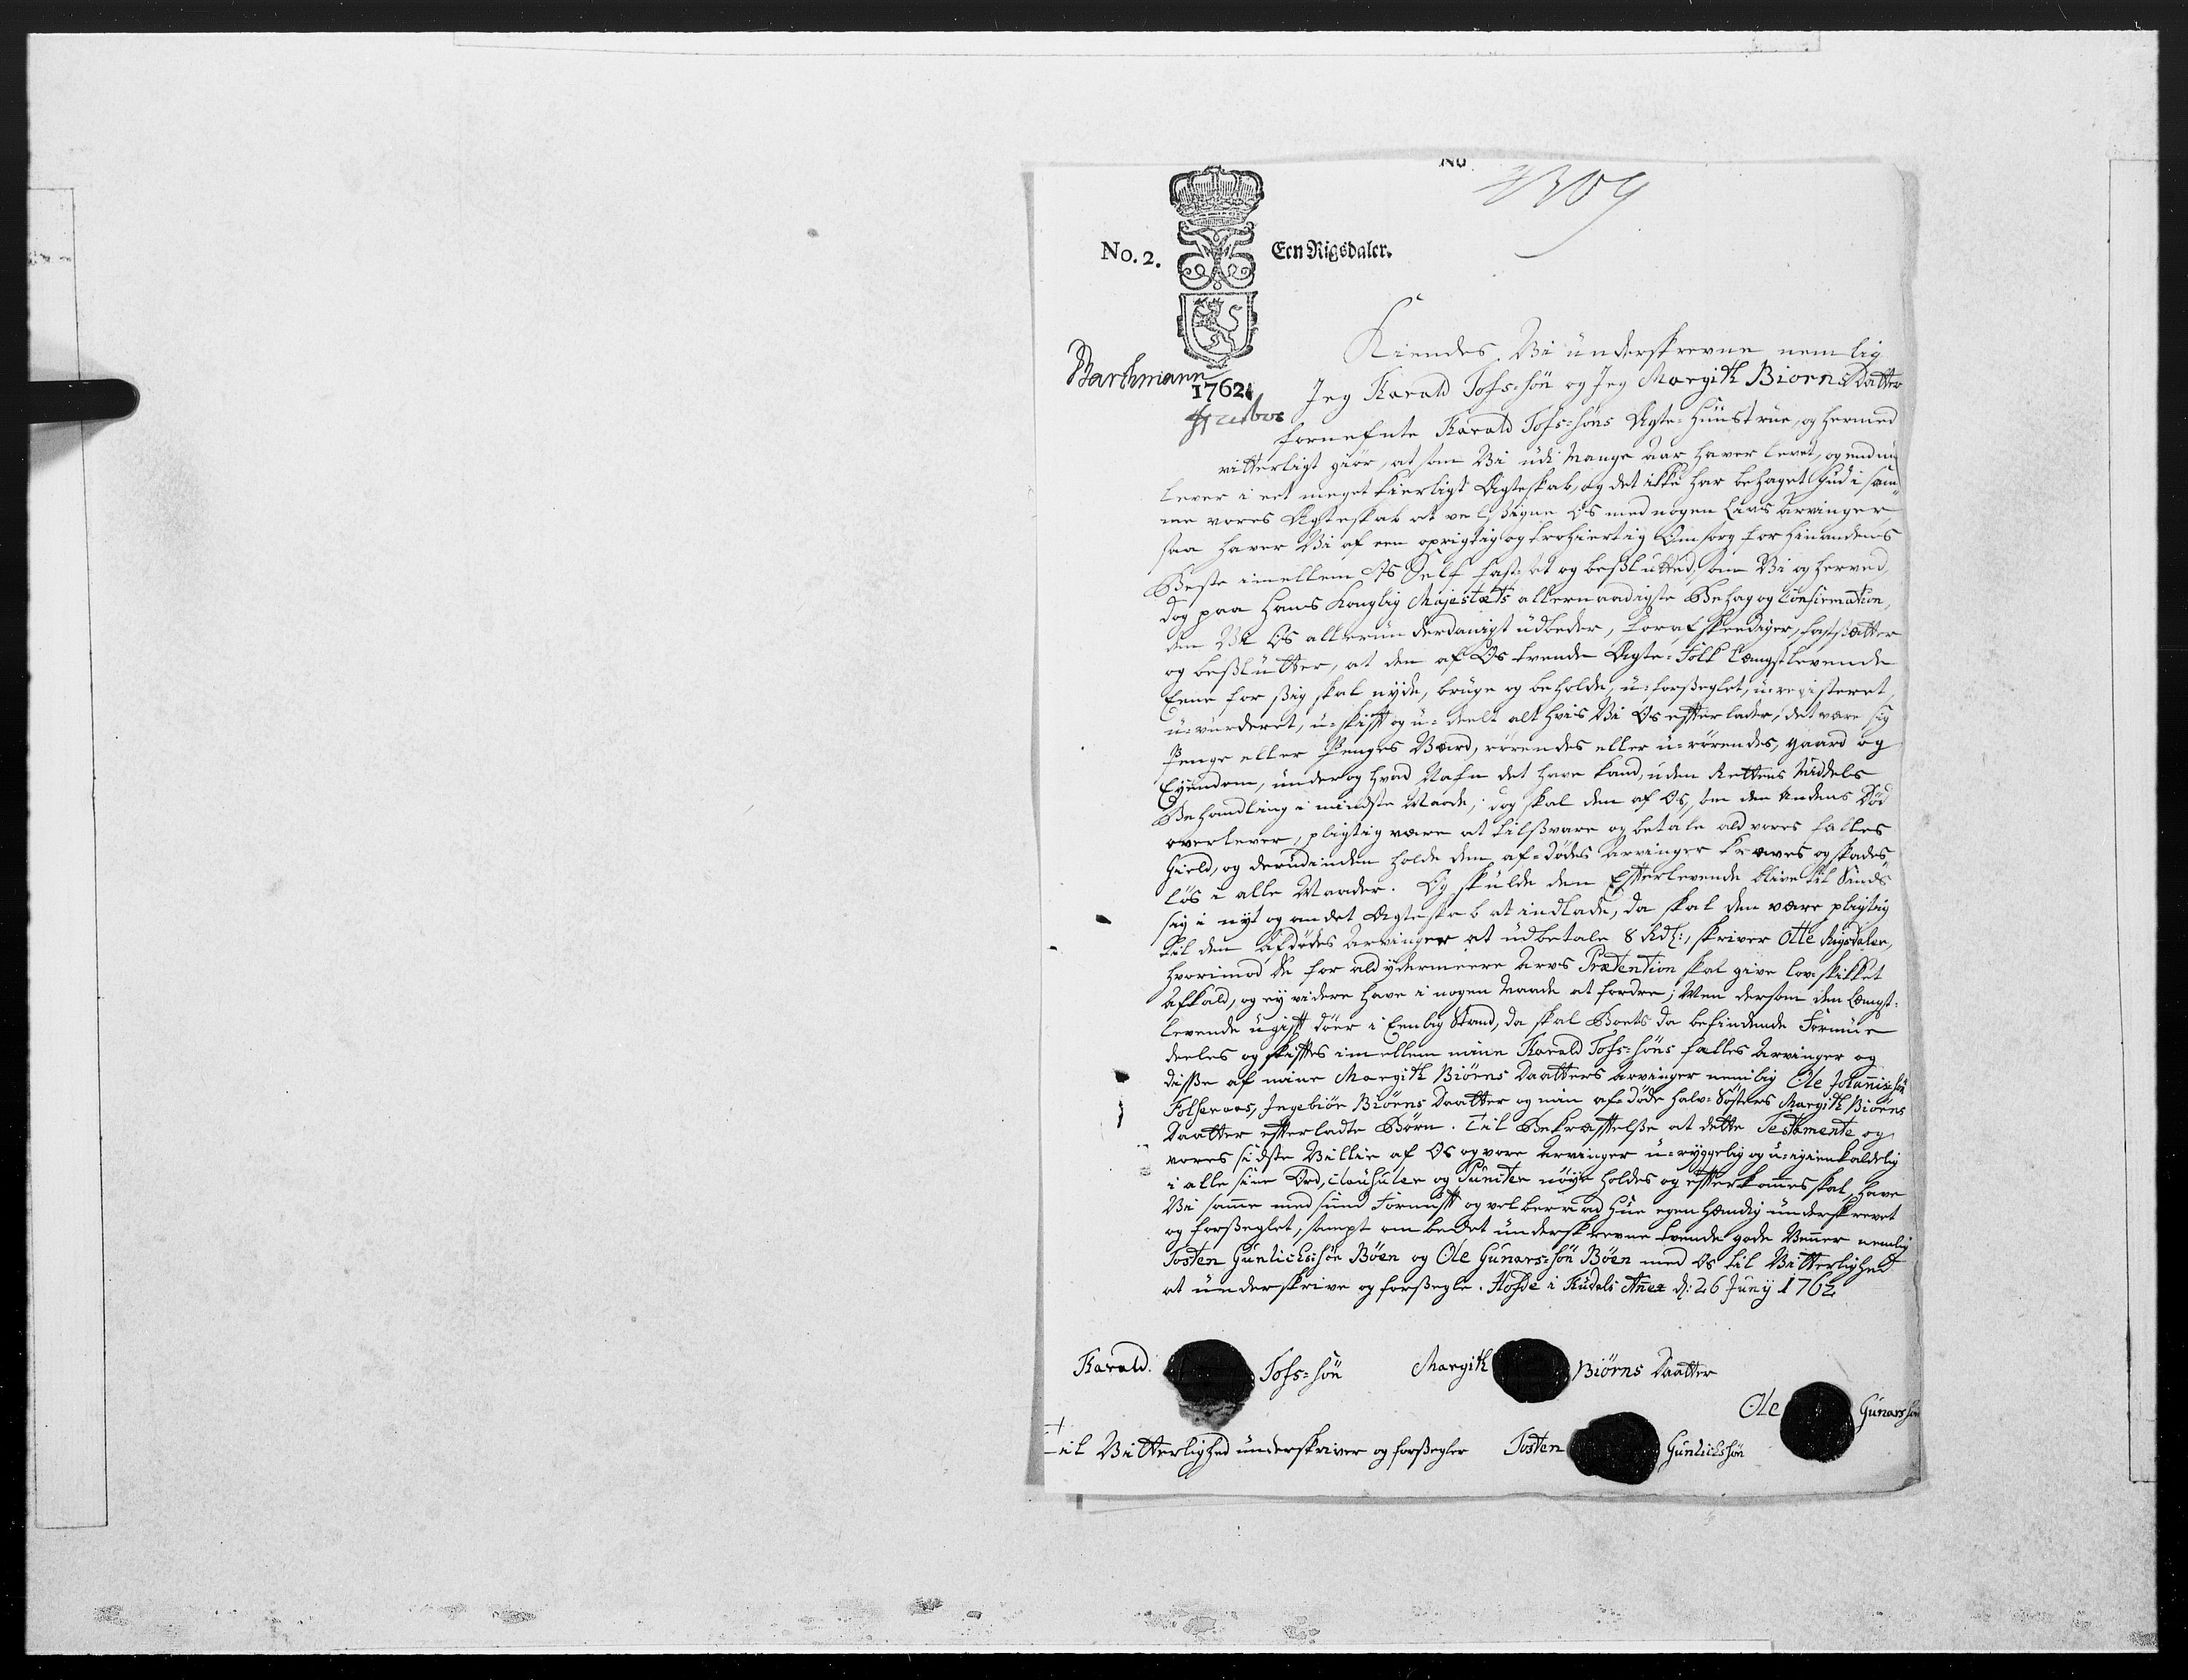 No.
No. 2.
Een Rigsdaler.
Barthmann
1762.
Kiendes Vi underskrevne nemlig
Jeg Harald Tofs=søn og Jeg Margith Biørns Datter
fornefnte Harald Tofs=søns Ægte=Hustrue, og hermed
vitterligt giør, at som Vi udi mange aar haver levet, og end nu
lever i eet meget kierligt Ægteskab, og det ikke har behaget Gud i sam¬
me vores Ægteskab at velsigne Os med nogen Livs Arvinger,
saa haver Vi af een oprigtig og trohiertig Omsorg for hinandens
Beste imellem Os Self fast=sat og besluttet, som Vi og herved,
dog paa Hans Konglig Majestæts allernaadigste Behag og Confirmation,
den Vi Os allerunderdanigst udbeder, foraf skeediger, fastsætter
og beslutter, at den af Os tvende Ægte=Folk længstlevende
Eene for sig skal nyde, bruge og beholde, u=forseglet, u=registeret,
u=vurderet, u=skift og u=deelt alt hvis Vi Os efterlader, det være sig
Penge eller Penges Værd, rørendes eller u=rørendes, gaard og
Eyendom, under og hvad Nafn det have kand, uden Rettens Middels
Behandling i mindste Maade; dog skal den af Os, som den Andens Død
overlever, pligtig være at tilsvare og betale ald vores fælles
Gield, og derudinden holde den af=dødes Arvinger kraves og skades
løs i alle Maader. Og skulde den Efterlevende blive til Sinds
sig i nyt og andet Ægteskab at indlade, da skal den være pligtig
til den Afdødes Arvinger at udbetale 8 Rdl:, skriver Otte Rigsdaler,
hvorimod de for ald ydermeere Arvs Prætention skal give lov=skikket
Afkald, og ey videre have i nogen Maade at fordre; Men dersom den længst=
levende ugift døer i Eenlig Stand, da skal Boets da befindende Formue
deeles og skiftes imellem mine Harald Tofs=søns falles Arvinger og
disse af mine Margith Biørns Daatters Arvinger nemlig Ole Johannis=søn
Folseraas, Ingebiør Biørns Daatter og min af=døde halv=Søsters Margith Biørns
Daatter efterladte Børn. Til Bekræftelse at dette Testamente og
vores sidste Villie af Os og vore Arvinger u=ryggelig og u=igienkaldelig
i alle sine Ord, Clausuler og Puncter nøye holdes og efterkommes skal, have
Vi samme med sund Fornuft og velberaad Hue egenhændig underskrevet
og forseglet, sampt ombedet underskrevne tvende gode Venner nemlig
Tosten Gunlichs=søn Bøen og Ole Gunars=søn Bøen med Os til Vitterlighed
at underskrive og forsegle. Hofde i Hudals Annex d: 26 Juny 1762
Harald Tofs=søn Margith Biørns Daatter
Ole Gunarssøn
Til Vitterlighed underskriver og forsegler Tosten Gunlichssøn